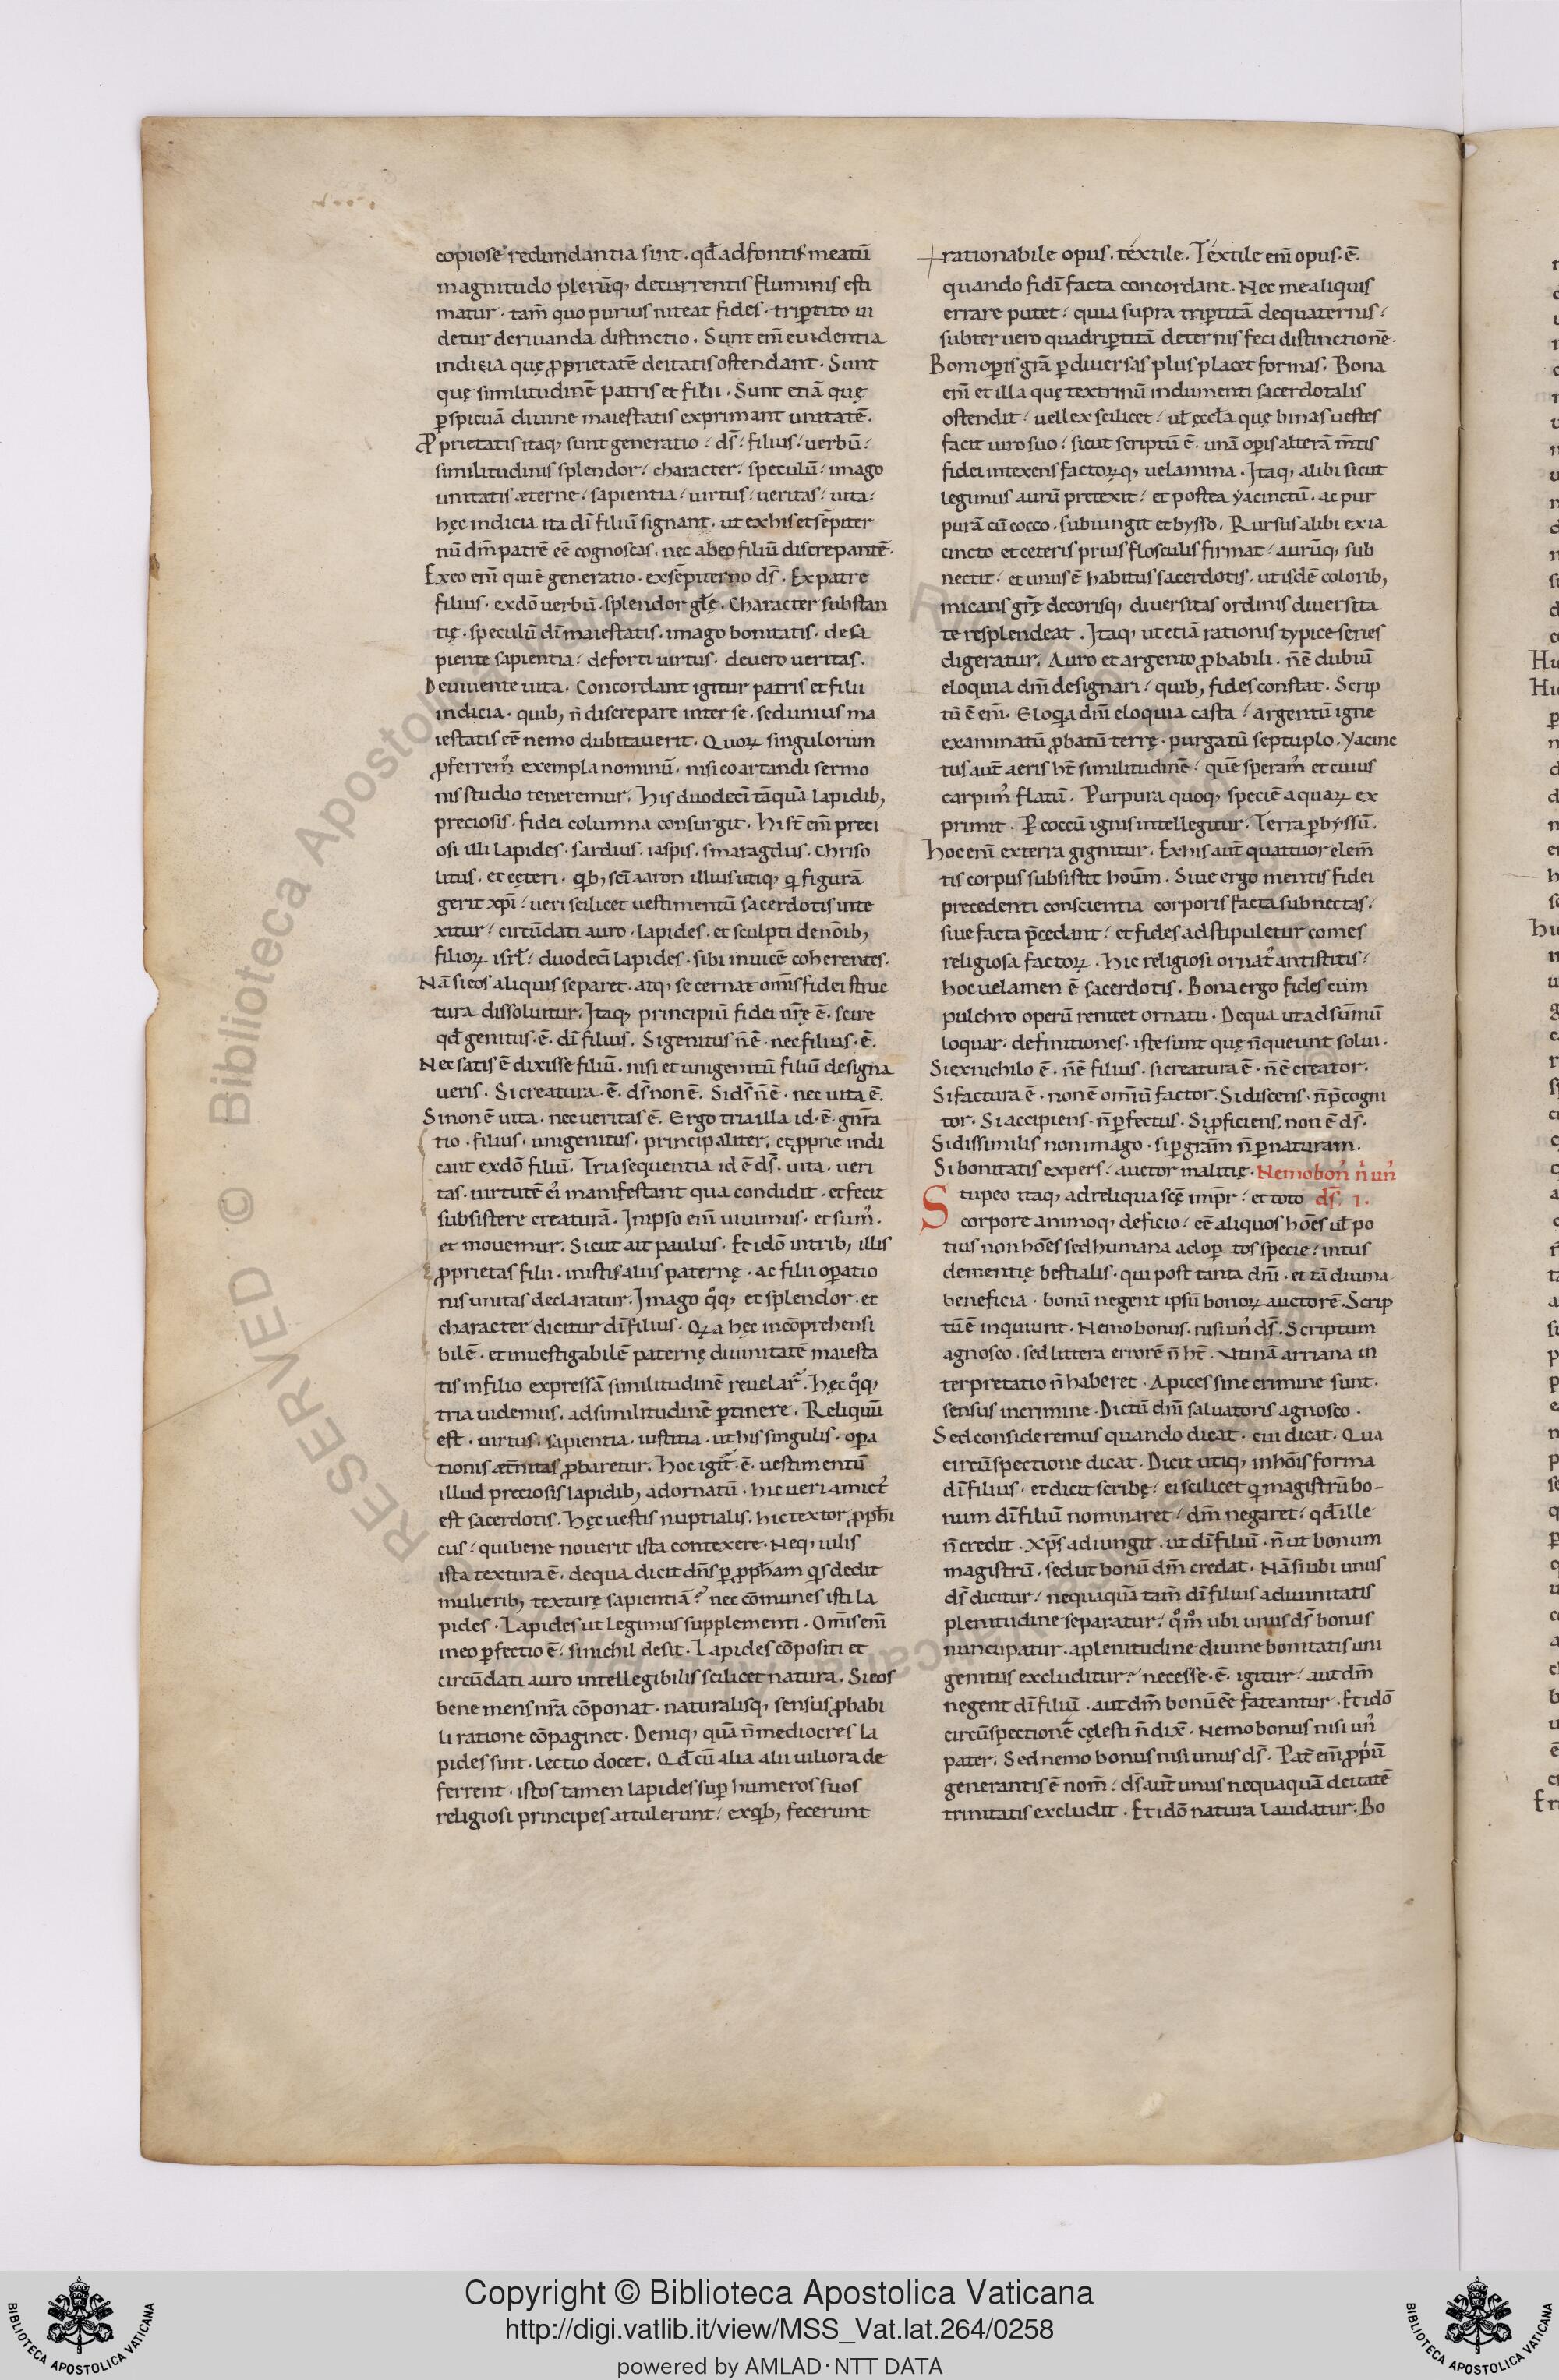 copiose redundantia sint · qđ ad fontis meatū
magnitudo plerūq; decurrentis fluminis esti
matur · tam̄ quo purius niteat fides · tripertito ui
detur deriuanda distinctio. Sunt eni̅ euidentia
indicia quę proprietatē deitatis ostendant · Sunt
quę similitudinē patris et filii. Sunt etiā quę
ꝑspicuā diuine maiestatis exprimant unitatē.
Ꝓprietatis itaq; sunt generatio / ds̄ / filius / uerbū /
similitudinis splendor / character / speculū / imago
unitatis æterne / sapientia / uirtus / ueritas / uita /
hęc indicia ita dī filiū signant · ut ex his et sēpiter
nū dm̄ patrē eē cognoscas · nec ab eo filiū discrepantē·
Ex eo eni̅ qui ē generatio · ex sēpiterno ds̄. Ex patre
filius · ex dō uerbū · splendor glę̄. Character substan
tię · speculū dī maiestatis · imago bonitatis · de sa
piente sapientia / de forti uirtus · de uero ueritas.
De uiuente uita. Concordant igitur patris et filii
indicia · quib; n̄ discrepare inter se · sed unius ma
iestatis eē nemo dubitauerit. Quoꝝ singulorum
ꝓferrem᾽ exempla nominū · nisi coartandi sermo
nis studio teneremur. His duodecī tāquā lapidib;
preciosis · fidei columna consurgit. Hi st̄ eni̅ preci
osi illi lapides · sardius · iaspis · smaragdus · chriso
litus · et ceteri · qib; scī aaron illius utiq; qi figurā
gerit xp̄i / ueri scilicet uestimentū sacerdotis inte
xitur / circūdati auro · lapides · et sculpti de noīb;
filioꝝ isrł / duodecī lapides · sibi inuicē coherentes·
Nā si eos aliquis separet · atq; secernat om̄is fidei struc
tura dissoluitur. Itaq; principiū fidei nr̄ę ē · scire
qđ genitus · ē · dī filius. Si genitus n̄ ē · nec filius · ē.
Nec satis ē dixisse filiū · nisi et unigenitū filiū designa
ueris. Si creatura · ē · ds̄ non ē. Si ds̄ n̄ ē · nec uita ē.
Si non ē uita · nec ueritas ē. Ergo tria illa id · ē · gnr̄a
tio · filius · unigenitus · principaliter · et ꝓprie indi
cant ex dō filiū. Tria sequentia id ē ds̄ · uita · ueri
tas · uirtutē ei᾽ manifestant qua condidit · et fecit
subsistere creaturā. In ipso eni̅ uiuimus · et sum᾽.
et mouemur. Sicut ait paulus. Et idō in trib; illis
ꝓprietas filii · in istis aliis paternę · ac filii oꝑatio
nis unitas declaratur. Imago qͦq; et splendor · et
character dicitur dī filius. Qi a hęc incōprehensi
bilē · et inuestigabilē paternę diuinitatē maiesta
tis in filio expressā similitudinē reuelar̄. Hęc qͦq;
tria uidemus · ad similitudinē ꝑtinere. Reliquū
est · uirtus · sapientia · iustitia · ut his singulis · oꝑa
tionis æt̄nitas ꝓbaretur. Hoc igit̄ · ē · uestimentū
illud preciosis lapidib; adornatū · hic ueri amict᾽
est sacerdotis. Hęc uestis nuptialis · hic textor ꝓph̄i
cus / qui bene nouerit ista contexere · Neq; uilis
ista textura ē · de qua dicit dn̄s ꝑ ꝓph̄am qis dedit
mulierib; texturę sapientiā? nec cōmunes isti la
pides · Lapides ut legimus supplementi. Om̄is eni̅
in eo ꝑfectio ē / si nichil desit. Lapides cōpositi et
circūdati auro intellegibilis scilicet natura. Si eos
bene mens nr̄a cōponat · naturalisq; sensus ꝓbabi
li ratione cōpaginet. Deniq; quā n̄ mediocres la
pides sint · lectio docet. Qđ cū alia alii uiliora de
ferrent · istos tamen lapides suꝑ humeros suos
religiosi principes attulerunt / ex qib; fecerunt
rationabile opus · téxtile · Téxtile eni̅ opus · ē.
quando fidī facta concordant. Nec me aliquis
errare putet / quia supra triꝑtitā de quaternis /
subter uero quadriꝑtitā de ternis feci distinctionē·
Boni oꝑis grā ꝑ diuersas plus placet formas. Bona
eni̅ et illa quę textrinū indumenti sacerdotalis
ostendit / uel lex scilicet / uł ęccła quę binas uestes
facit uiro suo / sicut scriptū ē · unā oꝑis alterā m̄tis
fidei intexens factoꝝq; uelamina. Itaq; alibi sicut
legimus aurū pretexit / et postea yacinctū · ac pur
purā cū cocco · subiungit et bysso. Rursus alibi ex ia
cincto et ceteris prius flosculis firmat / aurūq; sub
nectit / et unus ē habitus sacerdotis · ut isdē colorib;
micans gr̄ę decorisq; diuersitas ordinis diuersita
te resplendeat. Itaq; ut etiā rationis typice series
digeratur. Auro et argento ꝓbabili · n̄ ē dubiū
eloquia dni̅ designari / quib; fides constat. Scrip
tū ē eni̅. Eloqia dni̅ eloquia casta / argentū igne
examinatū ꝓbatū terrę · purgatū septuplo. Yacinc
tus aut̄ aeris ht̄ similitudinē / quē speram᾽ et cuius
carpim᾽ flatū. Purpura quoq; speciē aquaꝝ ex
primit. Ꝑ coccū ignis intellegitur. Terra ꝑ byssū.
Hoc eni̅ ex terra gignitur. Ex his aut̄ quattuor elem̄
tis corpus subsistit hoūm. Siue ergo mentis fidei
precedenti conscientia corporis facta subnectas /
siue facta p̄cedant / et fides adstipuletur comes
religiosa factoꝝ. Hic religiosi ornat᾽ antistitis /
hoc uelamen ē sacerdotis. Bona ergo fides cum
pulchro operū renitet ornatu. De qua ut ad sūmū
loquar · definitiones · iste sunt quę n̄ queunt solui.
Si ex nichilo ē · n̄ ē filius · si creatura ē · n̄ ē creator.
Si factura ē · non ē om̄iū factor. Si discens · n̄ p̄cogni
tor. Si accipiens · n̄ ꝑfectus. Si ꝓficiens · non ē ds̄.
Si dissimilis non imago · si ꝑ grām n̄ ꝑ naturam.
Si bonitatis expers / auctor malitię. Nemo bon᾽ n͛ un᾽
Stupeo itaq; ad reliqua scę̄ imp̄r / et toto ds̄. I.
corpore animoq; deficio / eē aliquos hōes uł po
tius non hōes sed humana adoꝑtos specie / intus
dementię bestialis · qui post tanta dni̅ · et tā diuina
beneficia · bonū negent ipsū bonoꝝ auctorē. Scrip
tū ē inquiunt · Nemo bonus · nisi un᾽ ds̄. Scriptum
agnosco · sed littera errorē n̄ ht̄. Utinā arriana in
terpretatio n̄ haberet. Apices sine crimine sunt.
sensus in crimine. Dictū dni̅ saluatoris agnosco.
Sed consideremus quando dicat · cui dicat. Qua
circūspectione dicat. Dicit utiq; in hōis forma
dī filius · et dicit scribę / ei scilicet qi magistrū bo-
num dī filiū nominaret / dm̄ negaret / qđ ille
n̄ credit. Xp̄s adiungit · ut dī filiū · n̄ ut bonum
magistrū · sed ut bonū dm̄ credat. Nā si ubi unus
ds̄ dicitur / nequaquā tam̄ dī filius a diuinitatis
plenitudine separatur / qͦm͂ ubi unus ds̄ bonus
nuncupatur · a plenitudine diuine bonitatis uni
genitus excluditur? necesse · ē · igitur / aut dm̄
negent dī filiū · aut dm̄ bonū eē fateantur. Et idō
circūspectionē cęlesti n̄ dix̄ · Nemo bonus nisi un᾽
pater. Sed nemo bonus nisi unus ds̄. Pat̄ eni̅ ꝓp̄ū
generantis ē nom̄ / ds̄ aut̄ unus nequaquā deitatē
trinitatis excludit. Et idō natura laudatur. Bo
Copyright © Biblioteca Apostolica Vaticana
http://digi.vatlib.it/view/MSS_Vat.lat.264/0258
powered by AMLAD·NTT DATA